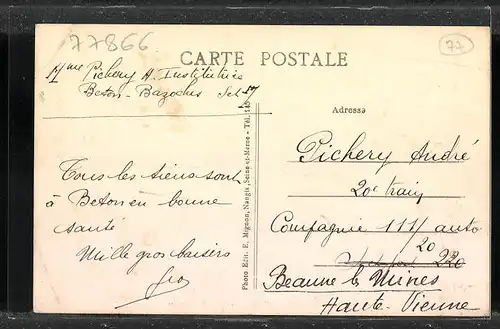 77866
77
CARTE POSTALE
Mme Pichery A. Institutrice
Beton-Bazoches S et M
Adresse
Tous les siens sont
à Beton en bonne
santé
Mille gros baisers
Photo Edit. E. Mignon, Nangis, Seine-et-Marne - Tél. 145
Pichery André
20e train
Compagnie 111/ auto
20
220
Beaune les Mines
Haute-Vienne